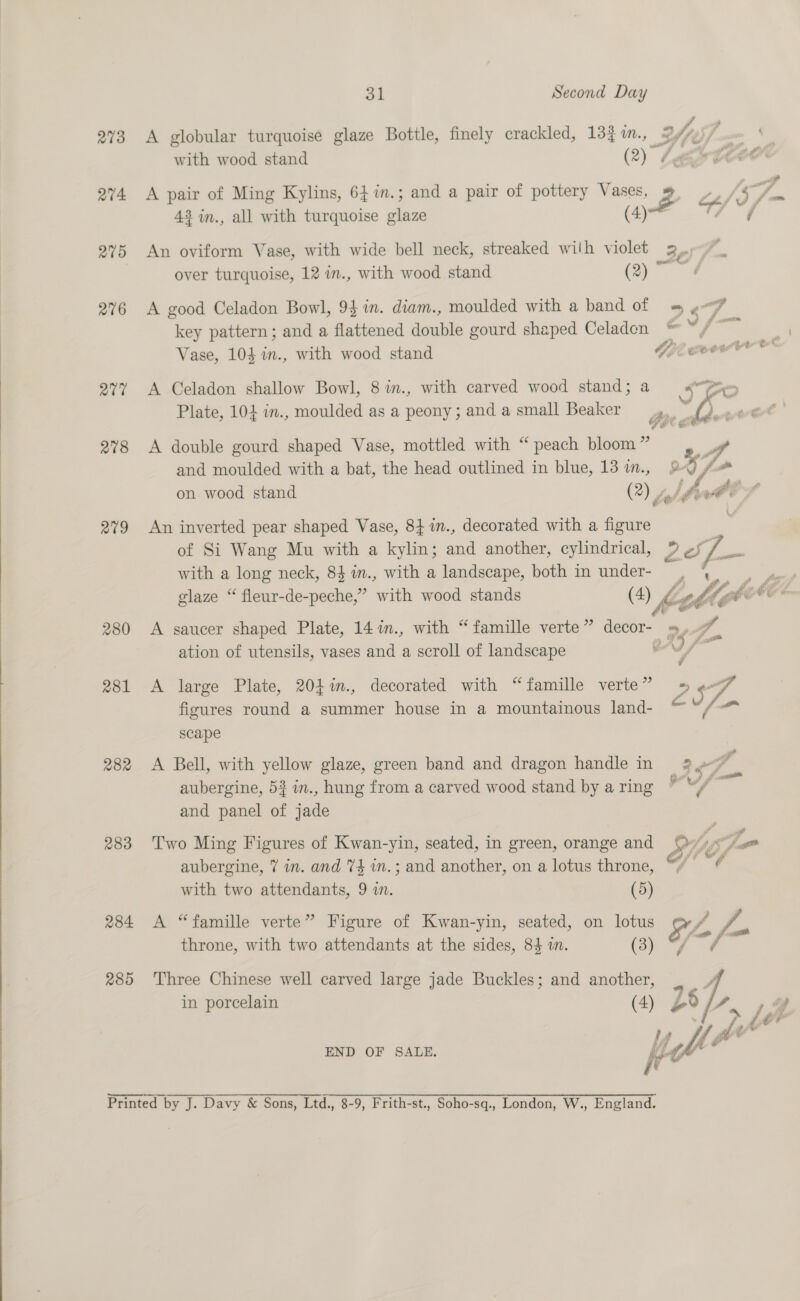 31 Second Day
273 A globular turquoise glaze Bottle, finely crackled, 13¾ in.,
with wood stand (2)
274 A pair of Ming Kylins, 6¼ in.; and a pair of pottery Vases,
4¾ in., all with turquoise glaze (4)
275 An oviform Vase, with wide bell neck, streaked with violet
over turquoise, 12 in., with wood stand (2)
276 A good Celadon Bowl, 9½ in. diam., moulded with a band of
key pattern; and a flattened double gourd shaped Celadon
Vase, 10½ in., with wood stand
277 A Celadon shallow Bowl, 8 in., with carved wood stand; a
Plate, 10¼ in., moulded as a peony; and a small Beaker
278 A double gourd shaped Vase, mottled with “peach bloom”
and moulded with a bat, the head outlined in blue, 13 in.,
on wood stand (2)
279 An inverted pear shaped Vase, 8¼ in., decorated with a figure
of Si Wang Mu with a kylin; and another, cylindrical,
with a long neck, 8½ in., with a landscape, both in under-
glaze “fleur-de-peche,” with wood stands (4)
280 A saucer shaped Plate, 14 in., with “famille verte” decor-
ation of utensils, vases and a scroll of landscape
281 A large Plate, 20¼ in., decorated with “famille verte”
figures round a summer house in a mountainous land-
scape
282 A Bell, with yellow glaze, green band and dragon handle in
aubergine, 5¾ in., hung from a carved wood stand by a ring
and panel of jade
283 Two Ming Figures of Kwan-yin, seated, in green, orange and
aubergine, 7 in. and 7½ in.; and another, on a lotus throne,
with two attendants, 9 in. (5)
284 A “famille verte” Figure of Kwan-yin, seated, on lotus
throne, with two attendants at the sides, 8½ in. (3)
285 Three Chinese well carved large jade Buckles; and another,
in porcelain (4)
END OF SALE.
Printed by J. Davy & Sons, Ltd., 8-9, Frith-st., Soho-sq., London, W., England.